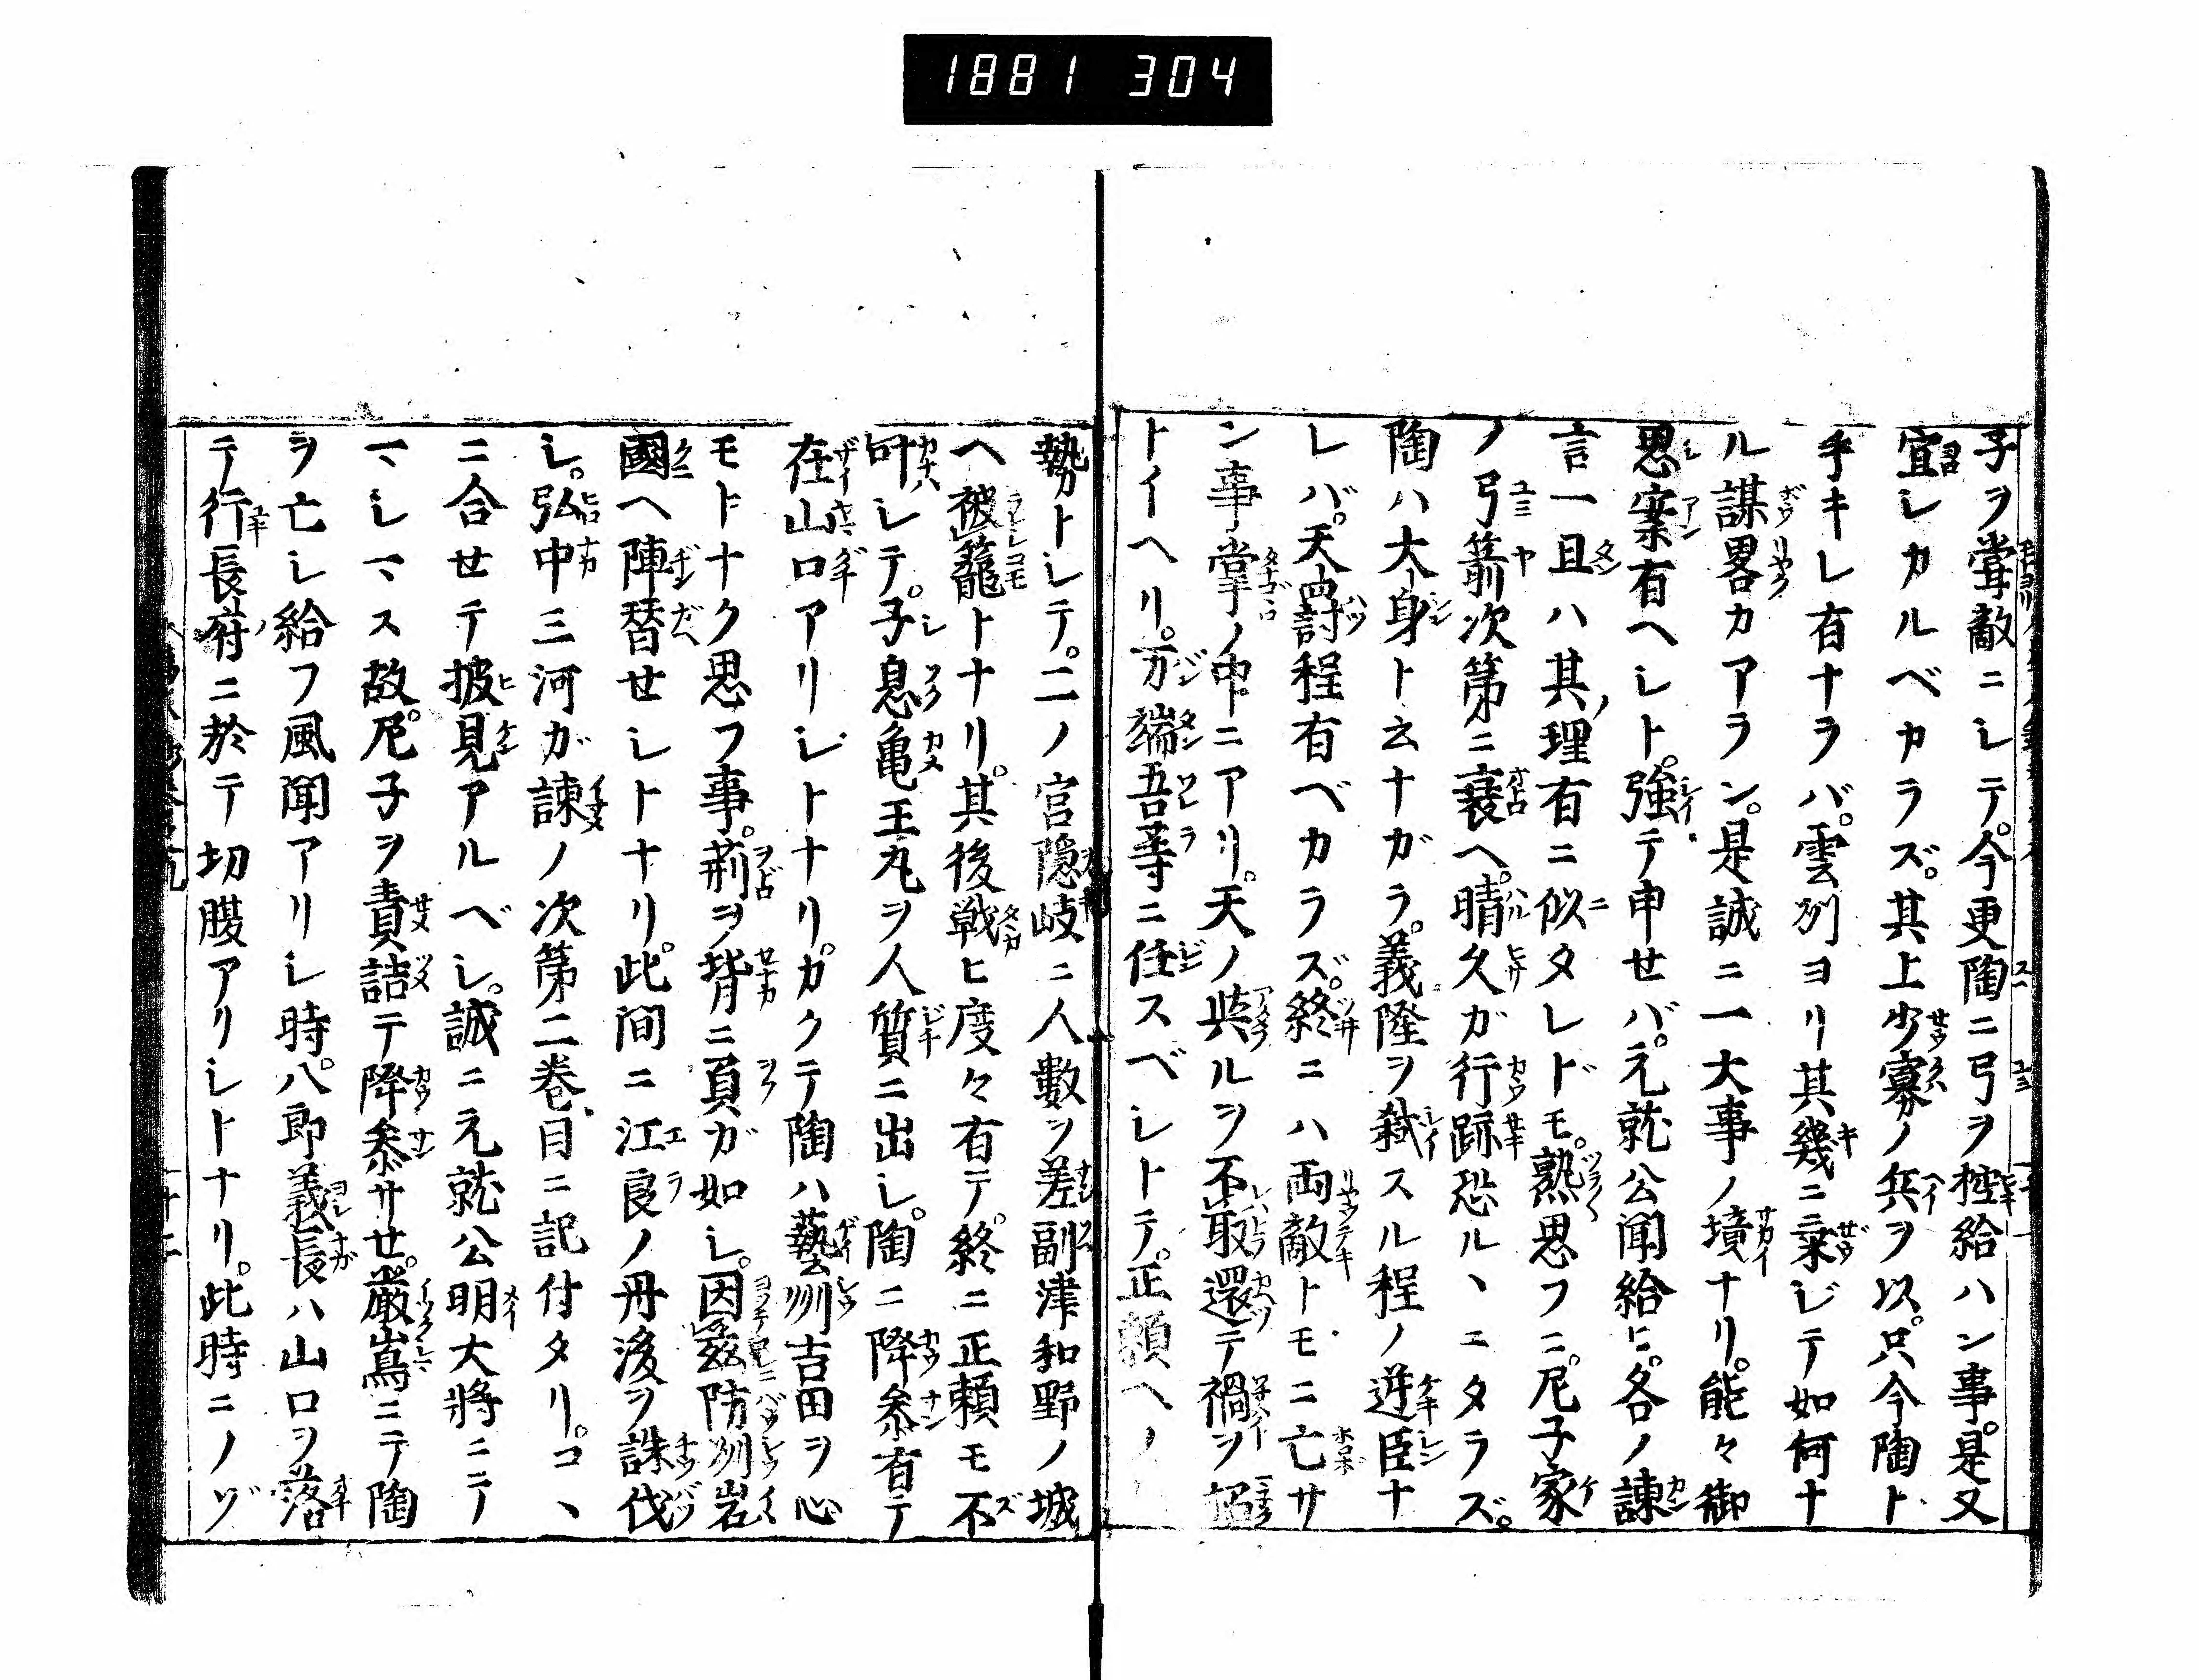 1881 304
子ヲ當敵ニシテ。今更陶ニ弓ヲ控給ハン事。是又
宜シカルベカラズ。其上少寡ノ兵ヲ以。只今陶ト
手キレ有ナラバ。雲州ヨリ其幾ニ乗ジテ如何ナ
ル謀畧カアラン。是誠ニ一大事ノ境ナリ。能々御
思案有ヘシト。強テ申せバ。元就公聞給ヒ。各ノ諫
言一旦ハ其理有ニ似タレドモ。熟思フニ。尼子家
ノ弓箭次第ニ衰ヘ。晴久ガ行跡恐ルヽニタラズ。
陶ハ大身ト云ナガラ。義隆ヲ弑スル程ノ逆臣ナ
レバ。天罸程有ベカラズ。終ニハ両敵トモニ亡サ
ン事掌ノ中ニアリ。天ノ與ルヲ不取還テ禍ヲ招
トイヘリ。万端吾等ニ任スベシトテ。正頼ヘノ
勢トシテ。二ノ宮隠岐ニ人數ヲ差副津和野ノ城
ヘ被籠トナリ。其後戦ヒ度々有テ。終ニ正頼モ不
叶シテ。子息亀王丸ヲ人質ニ出シ。陶ニ降参有テ
在山口アリシトナリ。カクテ陶ハ藝州吉田ヲ心
モトナク思フ事。荊ヲ背ニ負ガ如シ。因茲防州岩
國ヘ陣替せシトナリ。此間ニ江良ノ丹後ヲ誅伐
シ。弘中三河ガ諫ノ次第二巻目ニ記付タリ。コヽ
ニ合せテ披見アルベシ。誠ニ元就公明大将ニテ
マシマス故。尼子ヲ責詰テ降参サせ。嚴嶌ニテ陶
ヲ亡シ給フ風聞アリシ時。八郎義長ハ山口ヲ落
テ行長府ニ於テ切腹アリシトナリ。此時ニノゾ